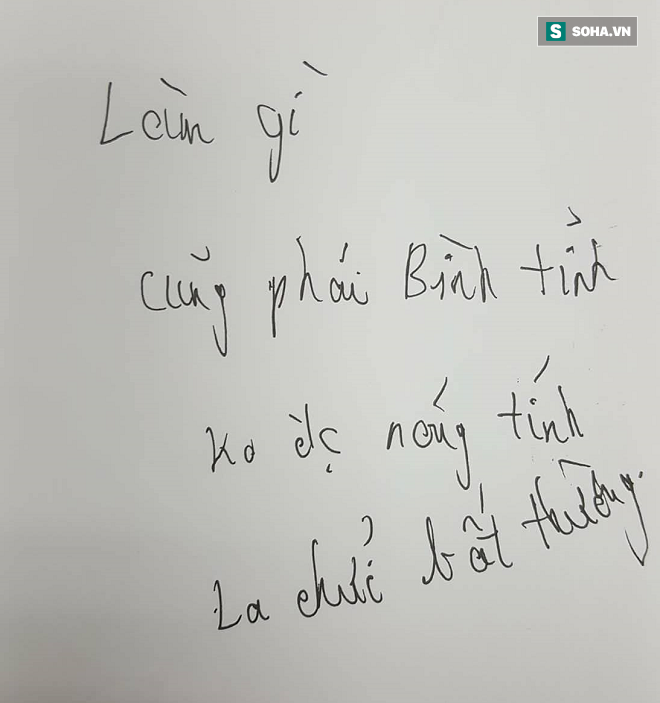 SOHA.VN
Làm gì
cũng phải Bình tỉnh
ko đc nóng tính
La chửi bất thường.